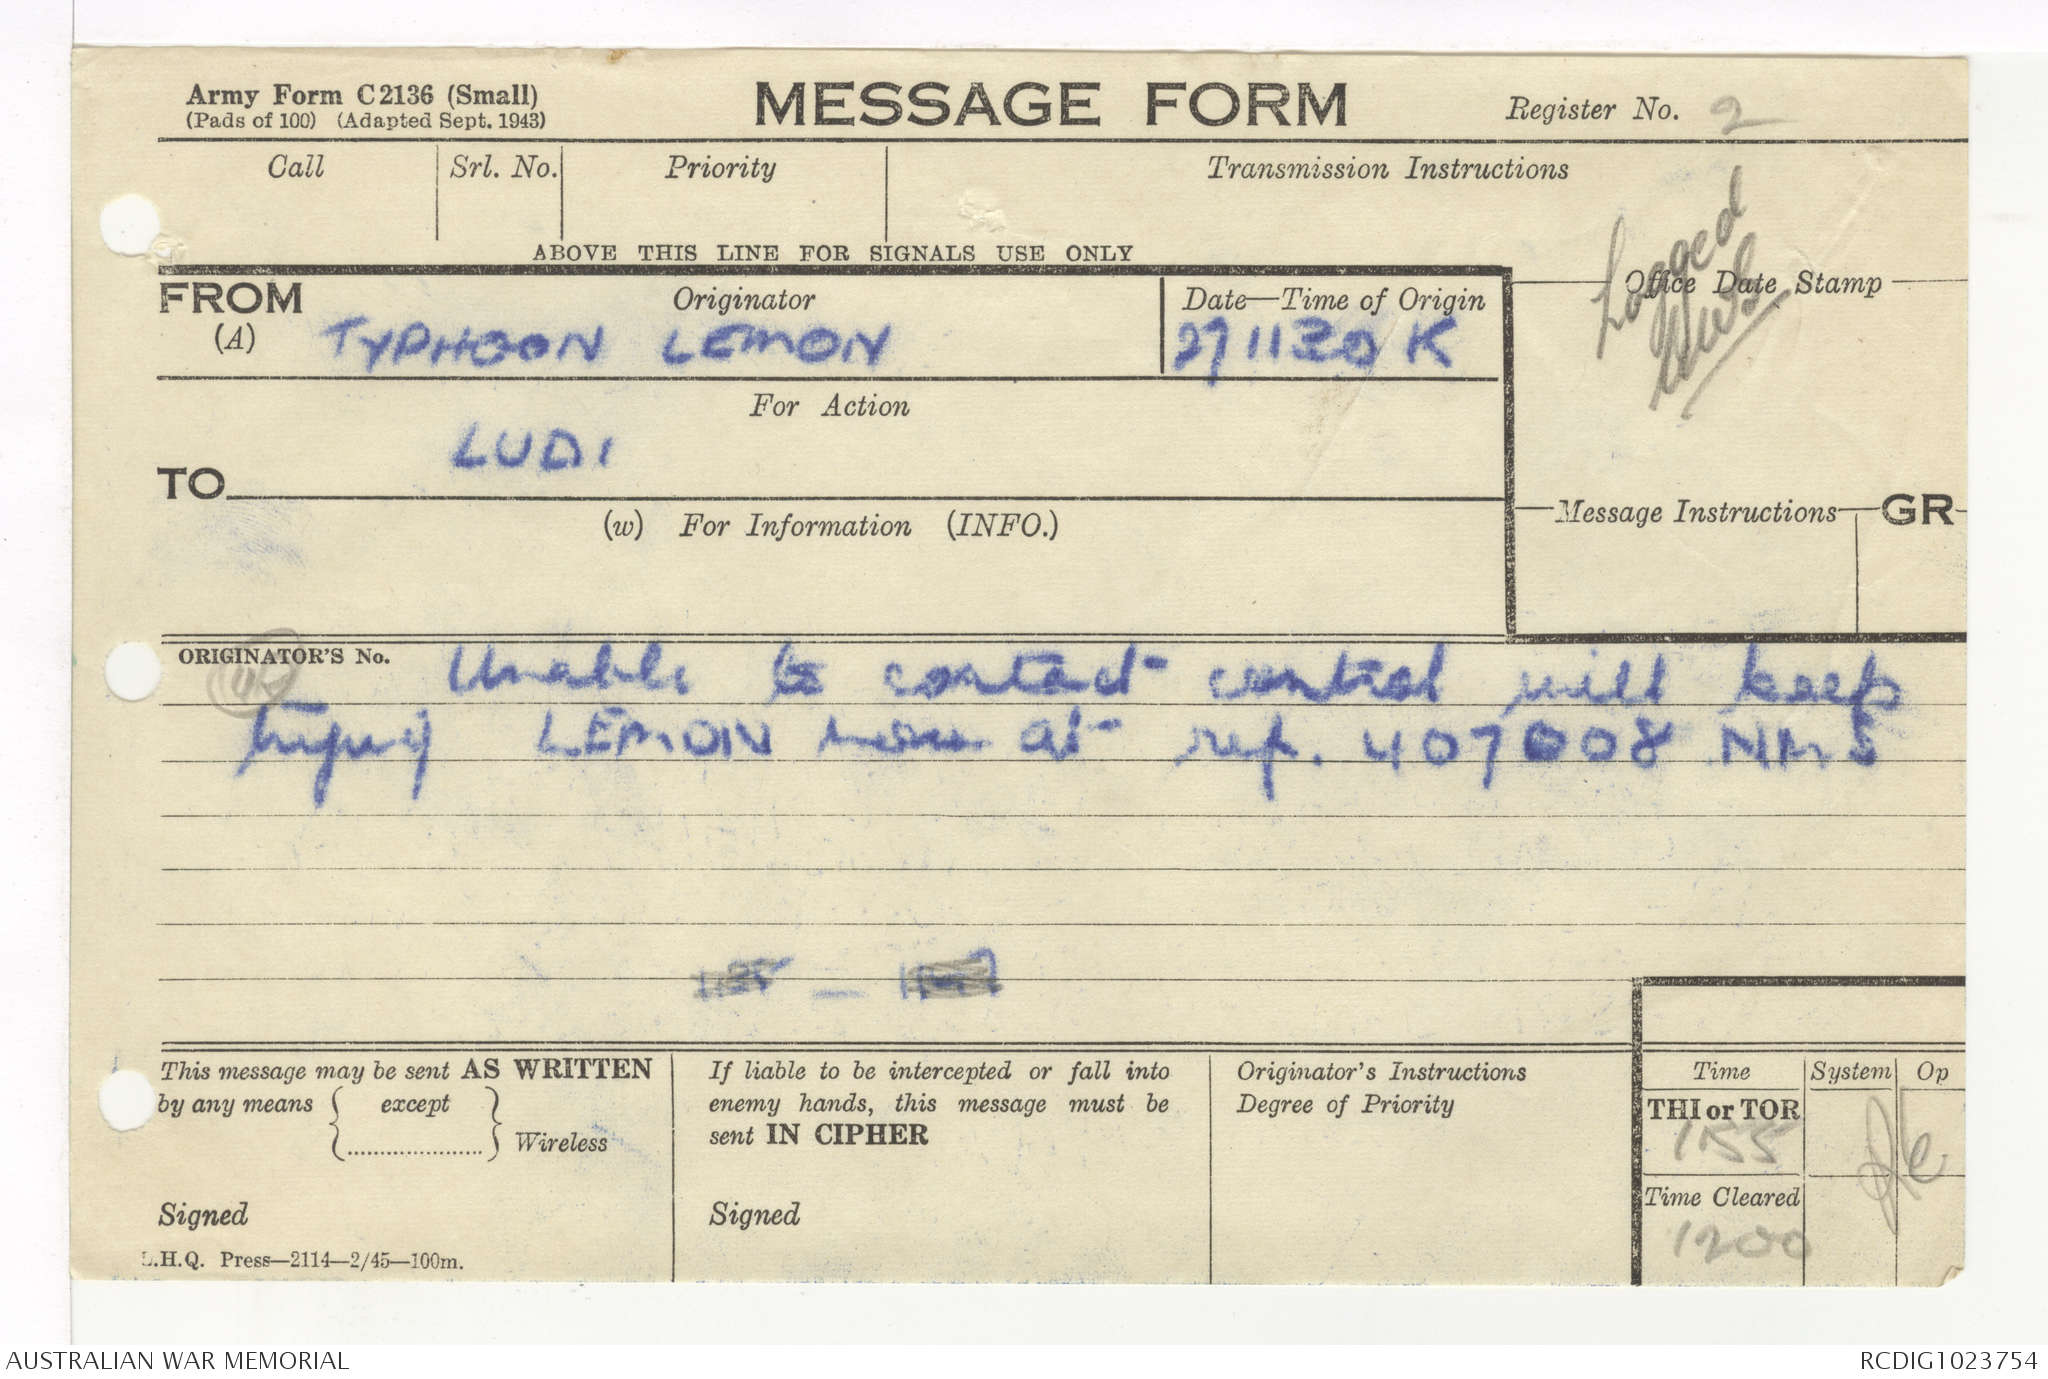 Army Form C2136 (Small)
(Pads of 100) (Adapted Sept. 1943)
MESSAGE FORM
Register No. 2
Call
Srl. No.
Priority
Transmission Instructions
ABOVE THIS LINE FOR SIGNALS USE ONLY
FROM
(A)
Originator
TYPHOON LEMON
Date—Time of Origin
271130 K
Office Date Stamp
Logged
For Action
LUDI
TO
(w) For Information (INFO.)
Message Instructions
GR
ORIGINATOR'S No.
Unable to contact control will keep
trying LEMON now at ref. 407008 NMS
This message may be sent AS WRITTEN
by any means
except
Wireless
Signed
L.H.Q. Press—2114—2/45—100m.
If liable to be intercepted or fall into
enemy hands, this message must be
sent IN CIPHER
Signed
Originator's Instructions
Degree of Priority
Time
System
Op
THI or TOR
1155
Time Cleared
1200
AUSTRALIAN WAR MEMORIAL
RCDIG1023754